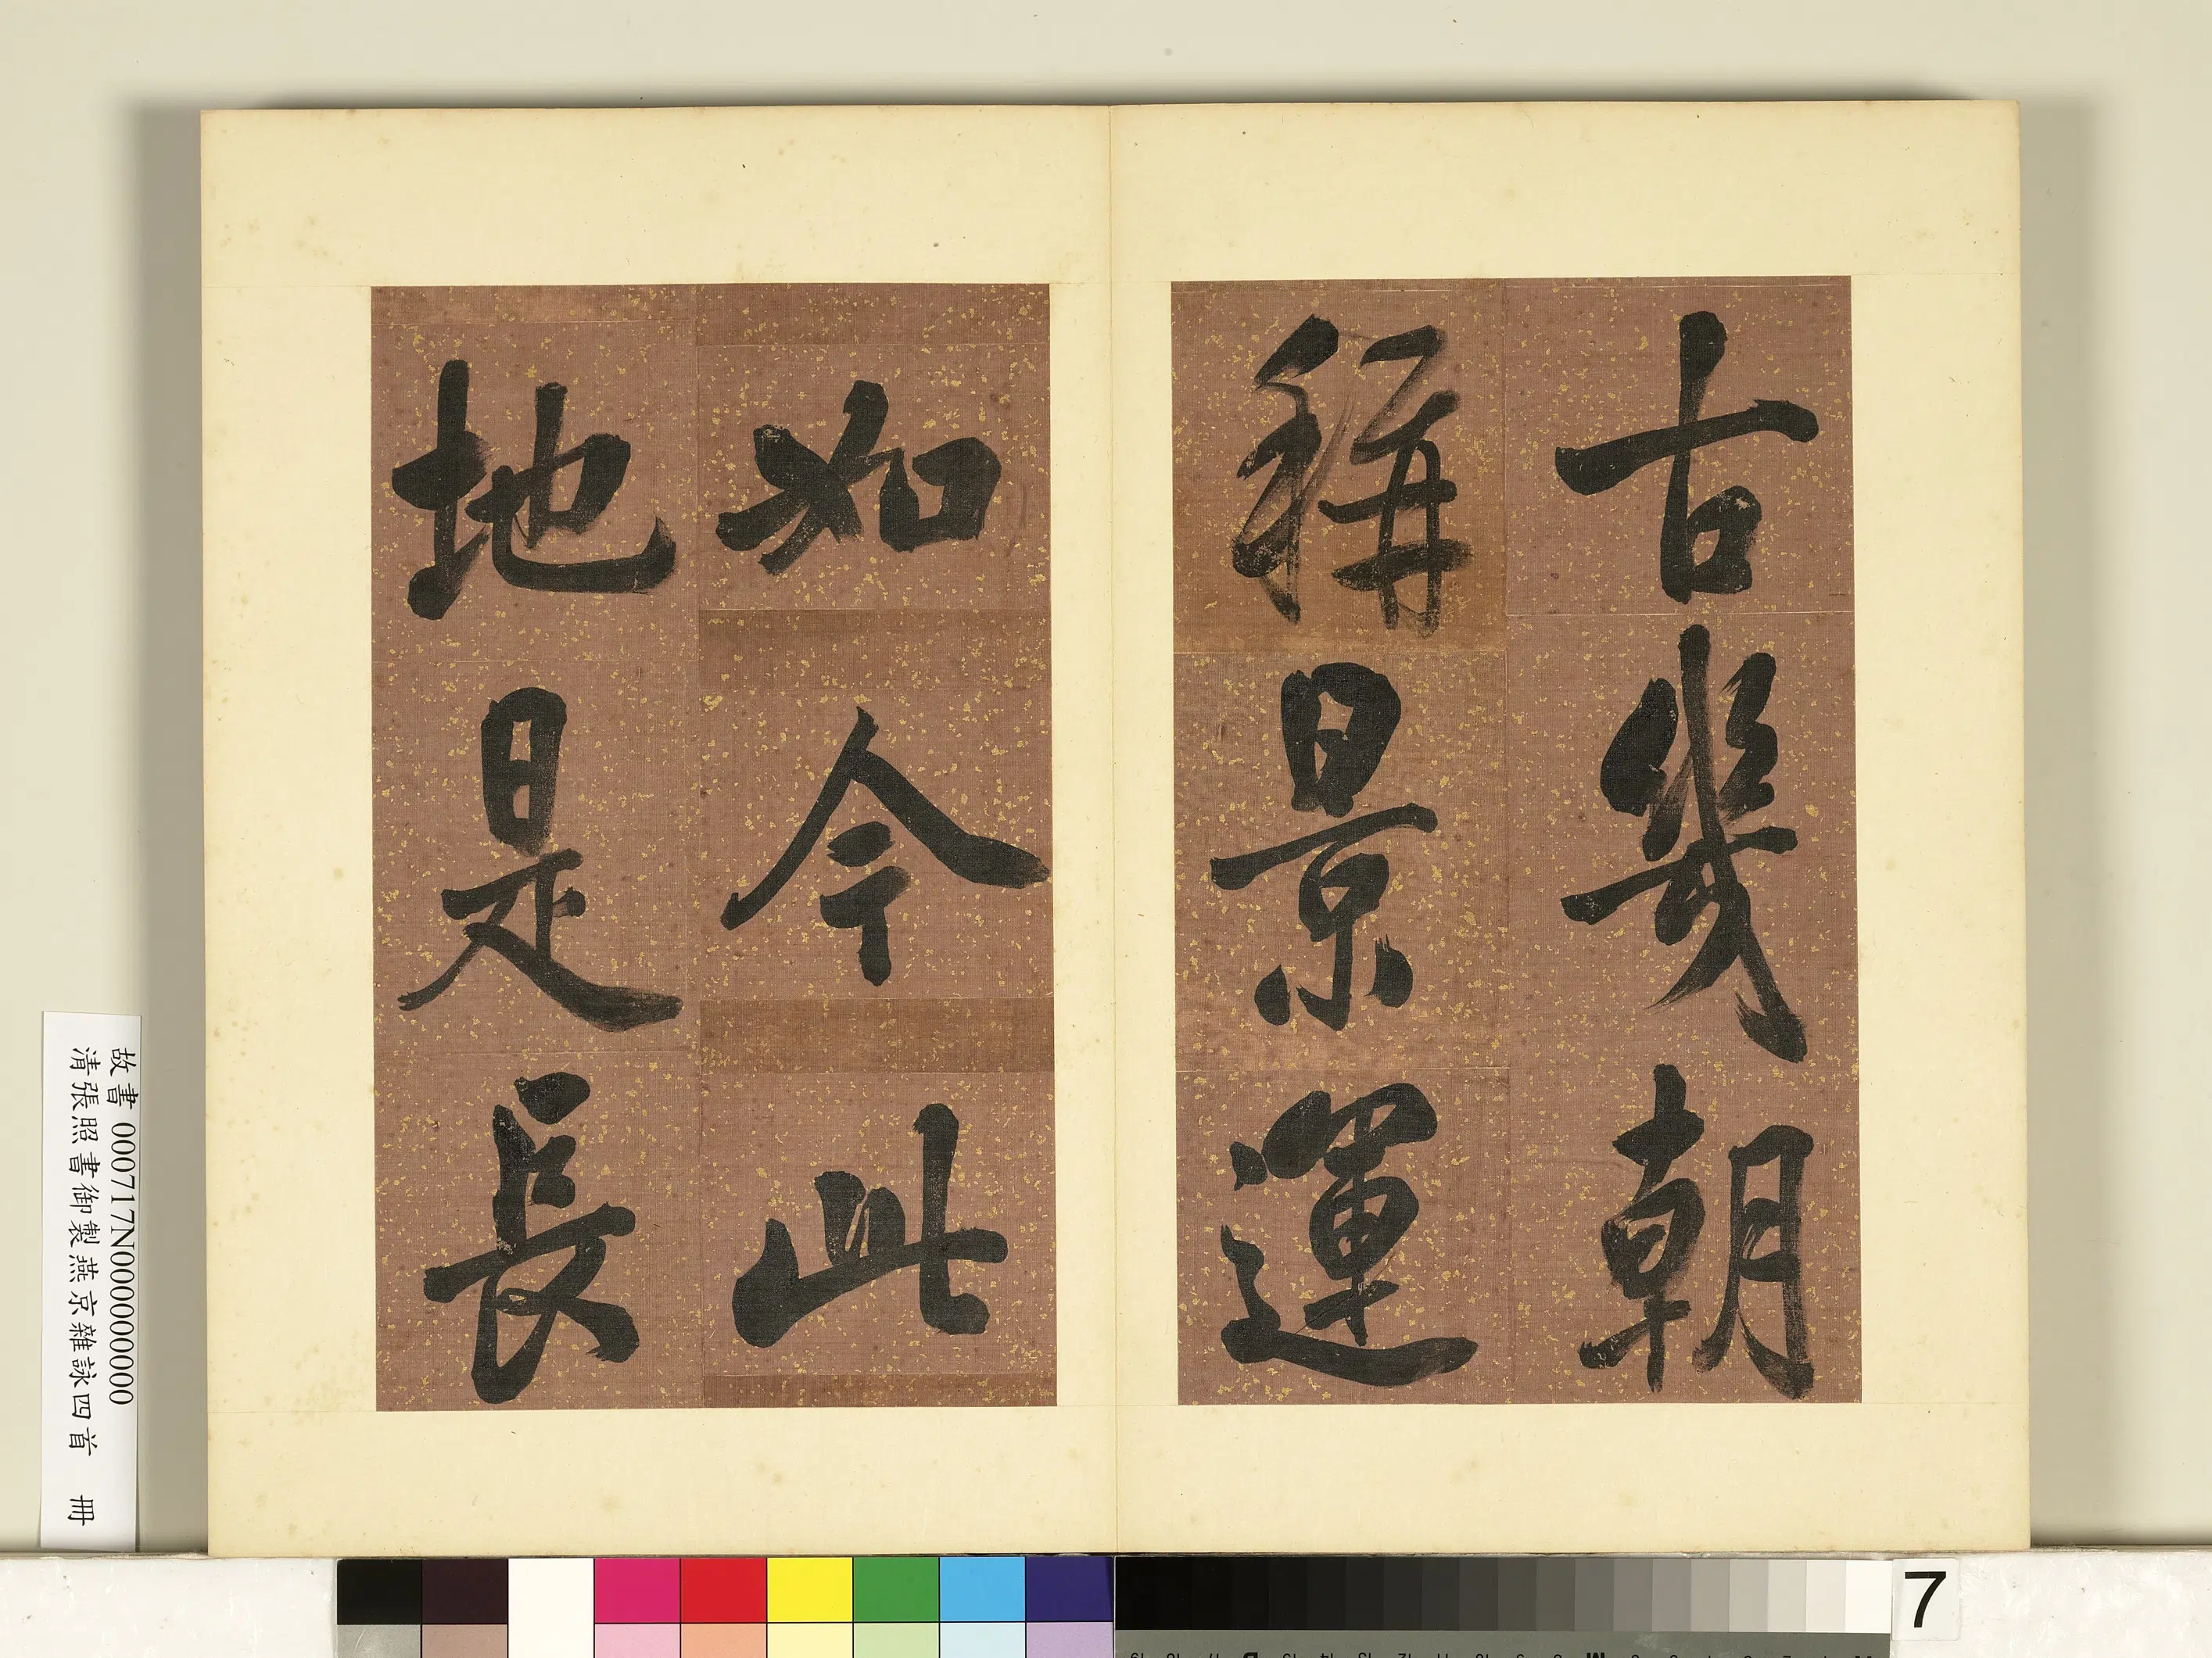 古幾朝
稱景運
如今此
地是長
故書 000717N000000000
清張照書御製燕京雜詠四首 冊
7